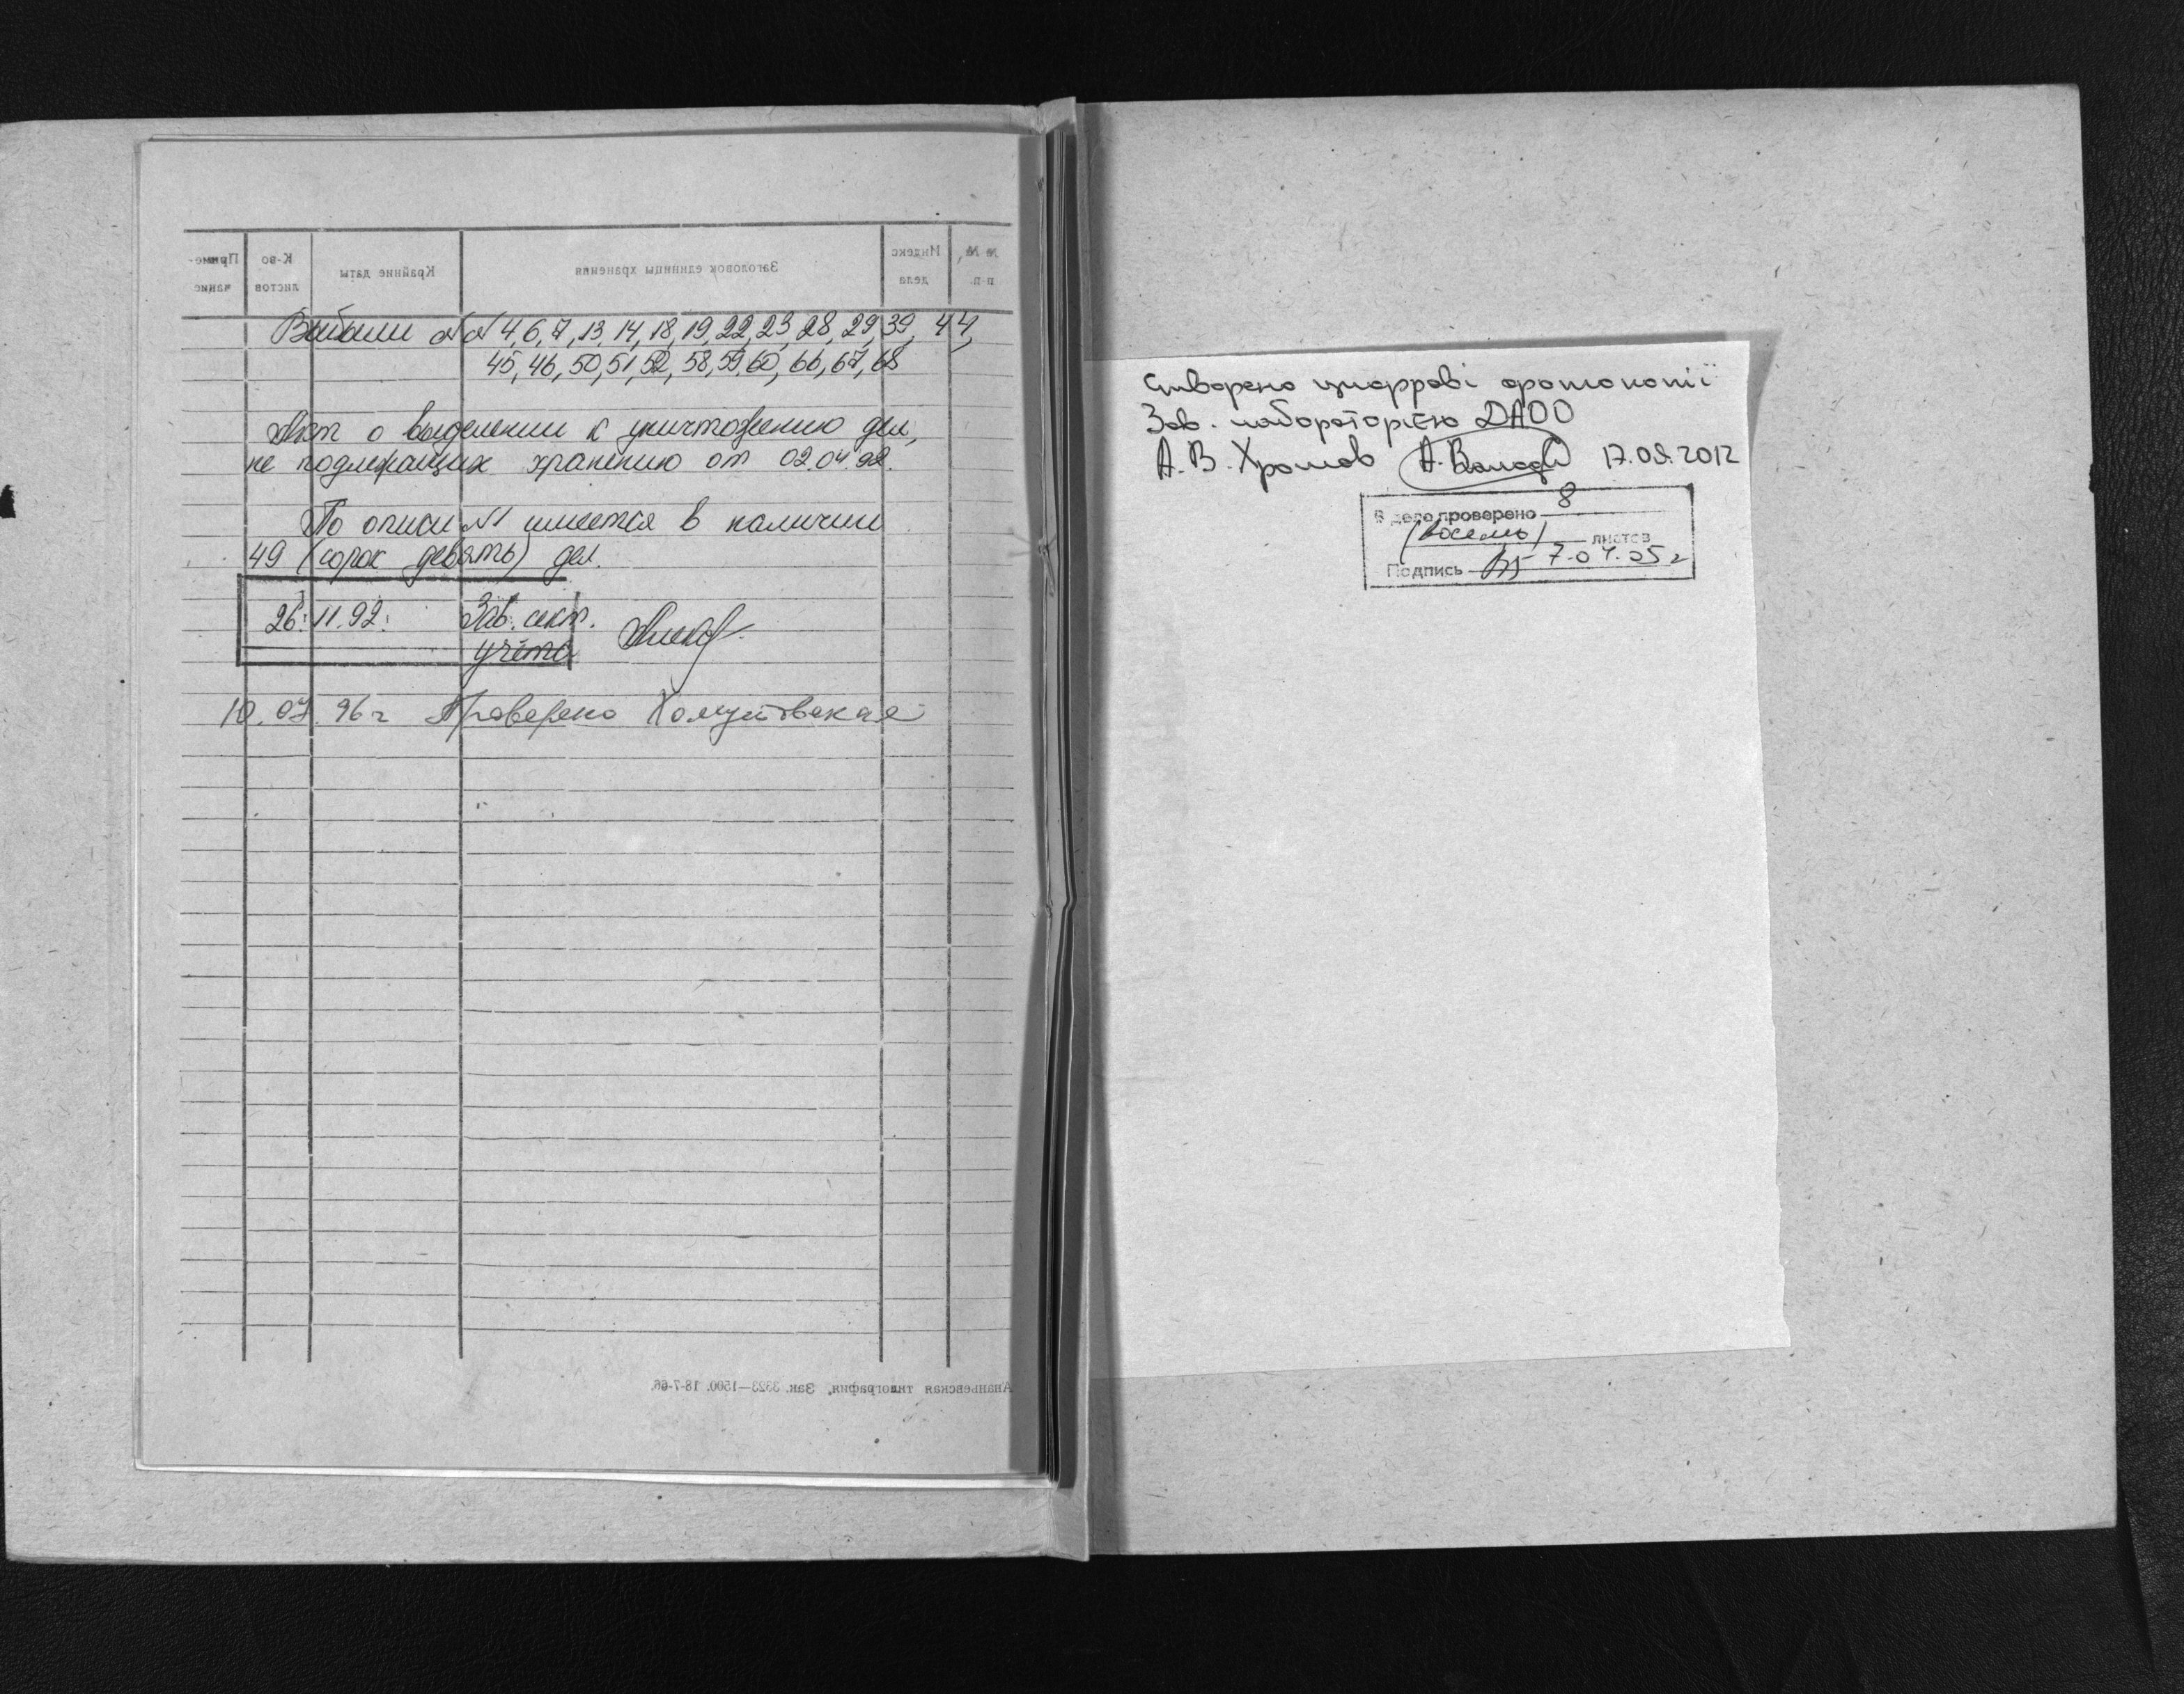 Приме-
чание
К-во
листов
Крайние даты
Заголовок единицы хранения
Индекс
дела
№ №
п-п.
Выбыли №№ 4, 6, 7, 13, 14, 18, 19, 22, 23, 28, 29, 39, 44,
45, 46, 50, 51, 52, 58, 59, 60, 66, 67, 68
Акт о выделении к уничтожению дел,
не подлежащих хранению от 02.04.92.
По описи №1 имеется в наличии
49 (сорок девять) дел.
26.11.92. Зав. сект.
учёта
10.07.96г Проверено Хомутовская
Ананьевская типография, Зак. 3323—1500. 18-7-66.
Створено цифрові фотокопії
Зав. лабораторією ДАОО
А. В. Хромов 17.09.2012
В деле проверено 8
(восемь) листов
Подпись 7.04.05г